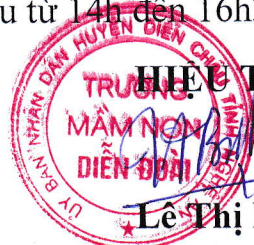 u từ 14h đến 16h
HIỆU T
ỦY BAN NHÂN DÂN HUYỆN DIỄN CHÂU TỈNH NGHỆ AN
TRƯỜNG
MẦM NON
DIỄN ĐOÀI
Lê Thị